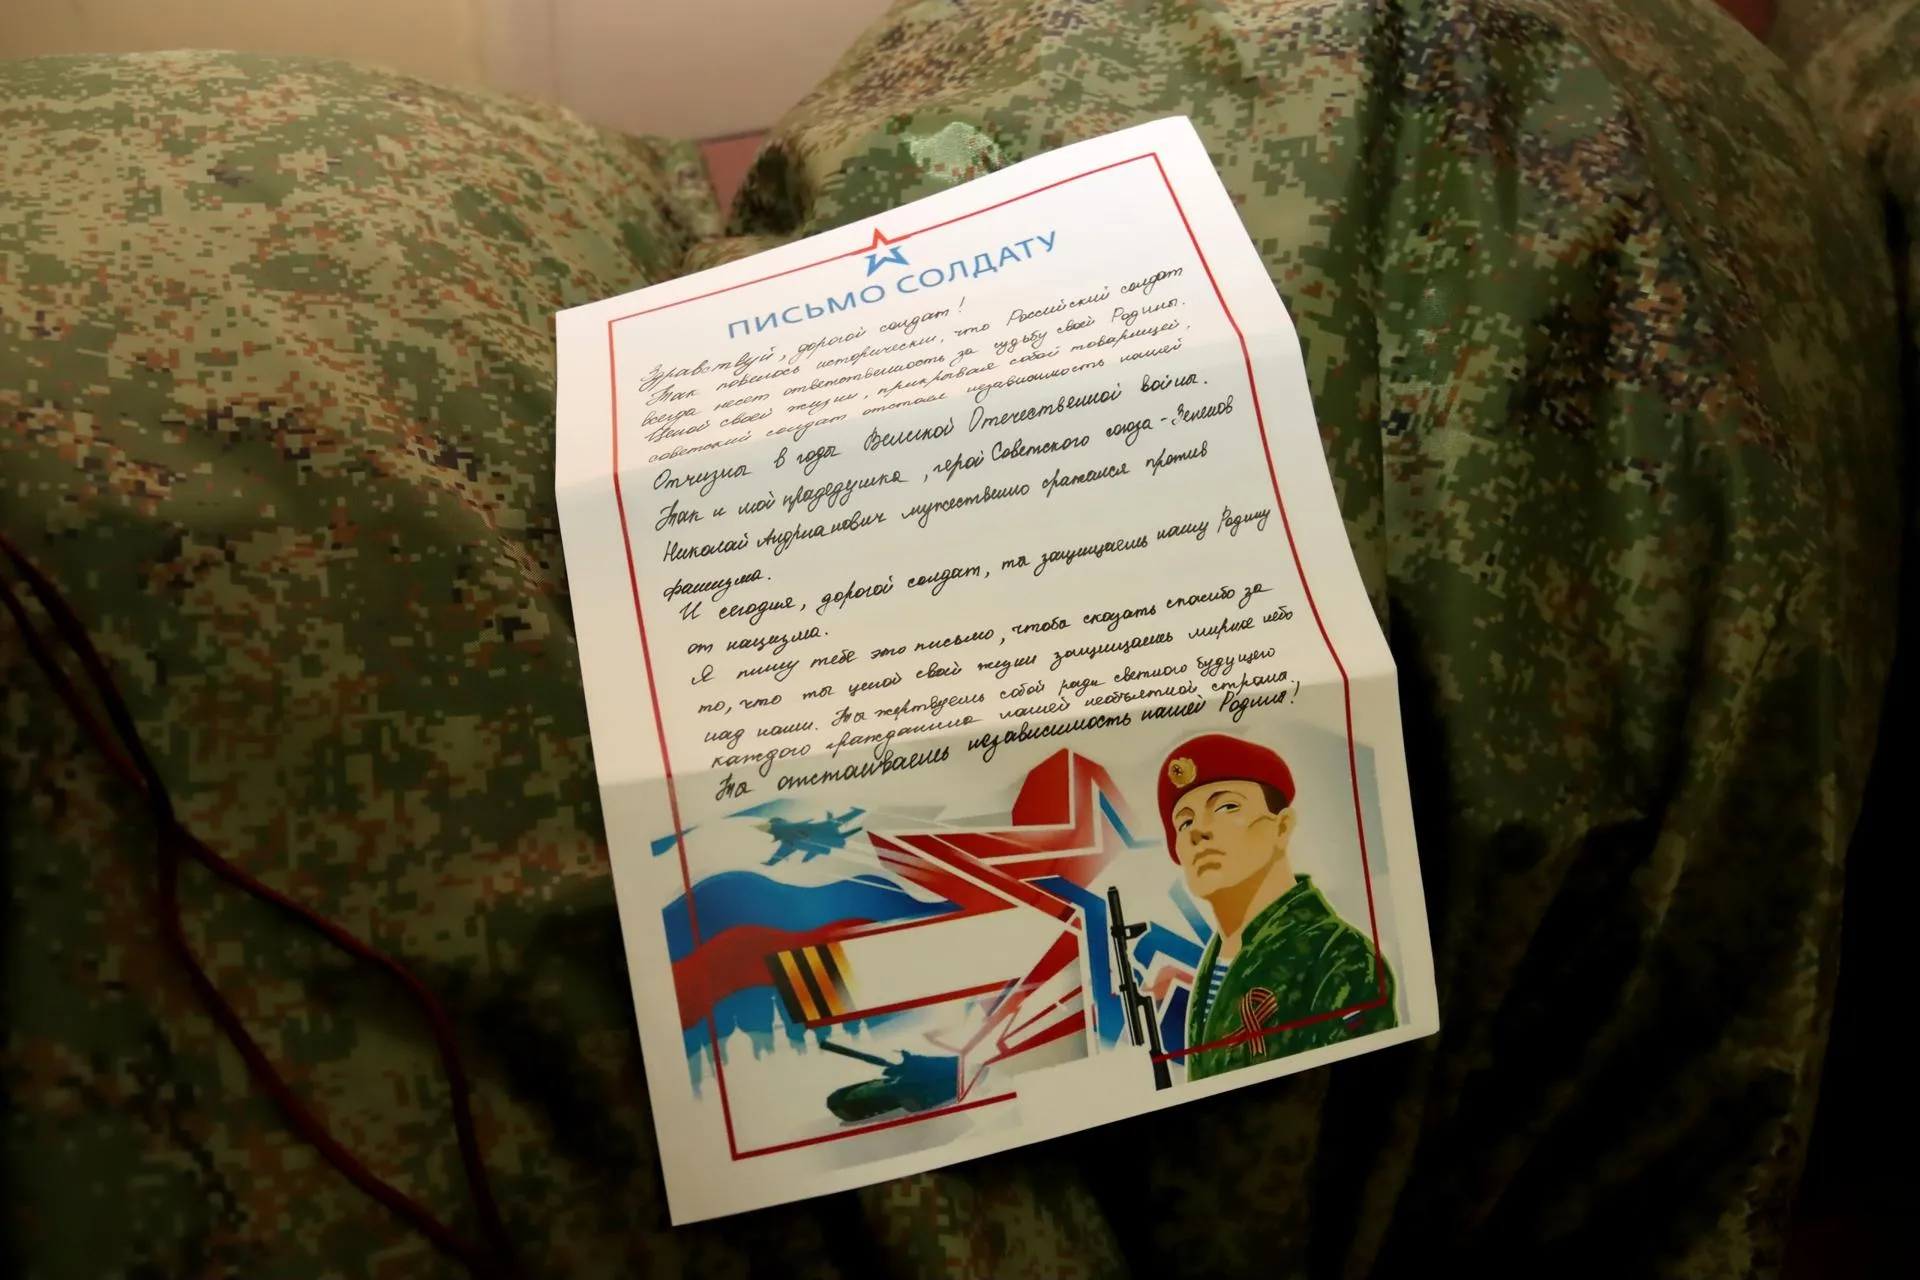 ПИСЬМО СОЛДАТУ
Здравствуй, дорогой солдат!
Так повелось исторически, что Российский солдат
всегда несет ответственность за судьбу своей Родины.
Ценой своей жизни, прикрывая собой товарищей,
советский солдат отстоял независимость нашей
Отчизны в годы Великой Отечественной войны.
Так и мой прадедушка, герой Советского союза -
Николай Андрианович мужественно сражался против
фашизма.
И сегодня, дорогой солдат, ты защищаешь нашу Родину
от нацизма.
Я пишу тебе это письмо, чтобы сказать спасибо за
то, что ты ценой своей жизни защищаешь мирное небо
над нами. Ты жертвуешь собой ради светлого будущего
каждого гражданина нашей необъятной страны.
Ты отстаиваешь независимость нашей Родины!